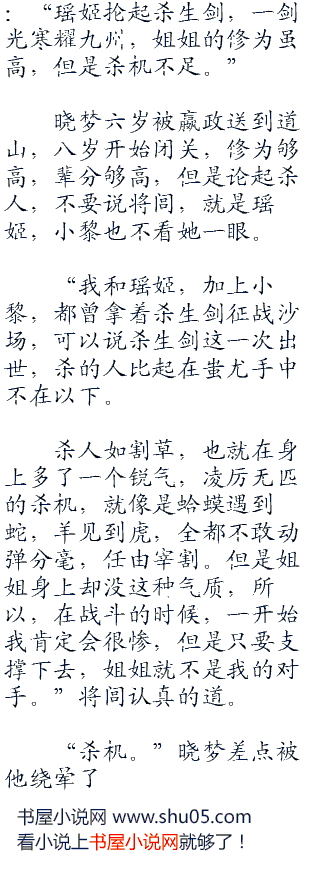 ：“瑶姬抡起杀生剑，一剑
光寒耀九州，姐姐的修为虽
高，但是杀机不足。”
晓梦六岁被嬴政送到道
山，八岁开始闭关，修为够
高，辈分够高，但是论起杀
人，不要说将闾，就是瑶
姬，小黎也不看她一眼。
“我和瑶姬，加上小
黎，都曾拿着杀生剑征战沙
场，可以说杀生剑这一次出
世，杀的人比起在蚩尤手中
不在以下。
杀人如割草，也就在身
上多了一个锐气，凌厉无匹
的杀机，就像是蛤蟆遇到
蛇，羊见到虎，全都不敢动
弹分毫，任由宰割。但是姐
姐身上却没这种气质，所
以，在战斗的时候，一开始
我肯定会很惨，但是只要支
撑下去，姐姐就不是我的对
手。”将闾认真的道。
“杀机。”晓梦差点被
他绕晕了
书屋小说网 www.shu05.com
看小说上书屋小说网就够了！